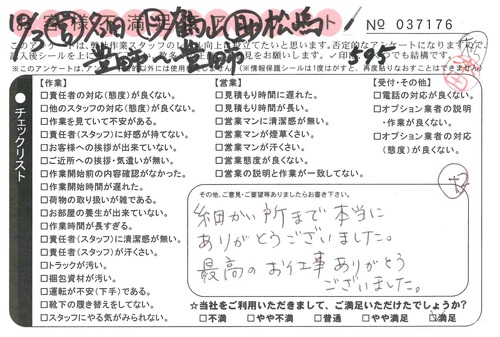 お客様不満足アンケート № 037176
595
【作業】
□責任者の対応(態度)が良くない。
□他のスタッフの対応(態度)が良くない。
□作業を見ていて不安がある。
□責任者(スタッフ)に好感が持てない。
□お客様への挨拶が出来ていない。
□ご近所への挨拶・気遣いが無い。
□作業開始前の内容確認がなかった。
□作業開始時間が遅れた。
□荷物の取り扱いが雑である。
□お部屋の養生が出来ていない。
□作業時間が長すぎる。
□責任者(スタッフ)に清潔感が無い。
□責任者(スタッフ)が汗くさい。
□トラックが汚い。
□梱包資材が汚い。
□運転が不安(下手)である。
□靴下の履き替えをしてない。
□スタッフにやる気がみられない。
【営業】
□見積もり時間に遅れた。
□見積もり時間が長い。
□営業マンに清潔感が無い。
□営業マンが煙草くさい。
□営業マンが汗くさい。
□営業態度が良くない。
□営業の説明と作業が一致してない。
【受付・その他】
□電話の対応が良くない。
□オプション業者の説明
・作業が良くない。
□オプション業者の対応
(態度)が良くない。
チェックリスト
その他、ご意見・ご要望等ありましたらお書き下さい。
細かい所まで本当に
ありがとうございました。
最高のお仕事ありがとう
ございました。
☆当社をご利用いただきまして、ご満足いただけたでしょうか?
□不満 □やや不満 □普通 □やや満足 □満足